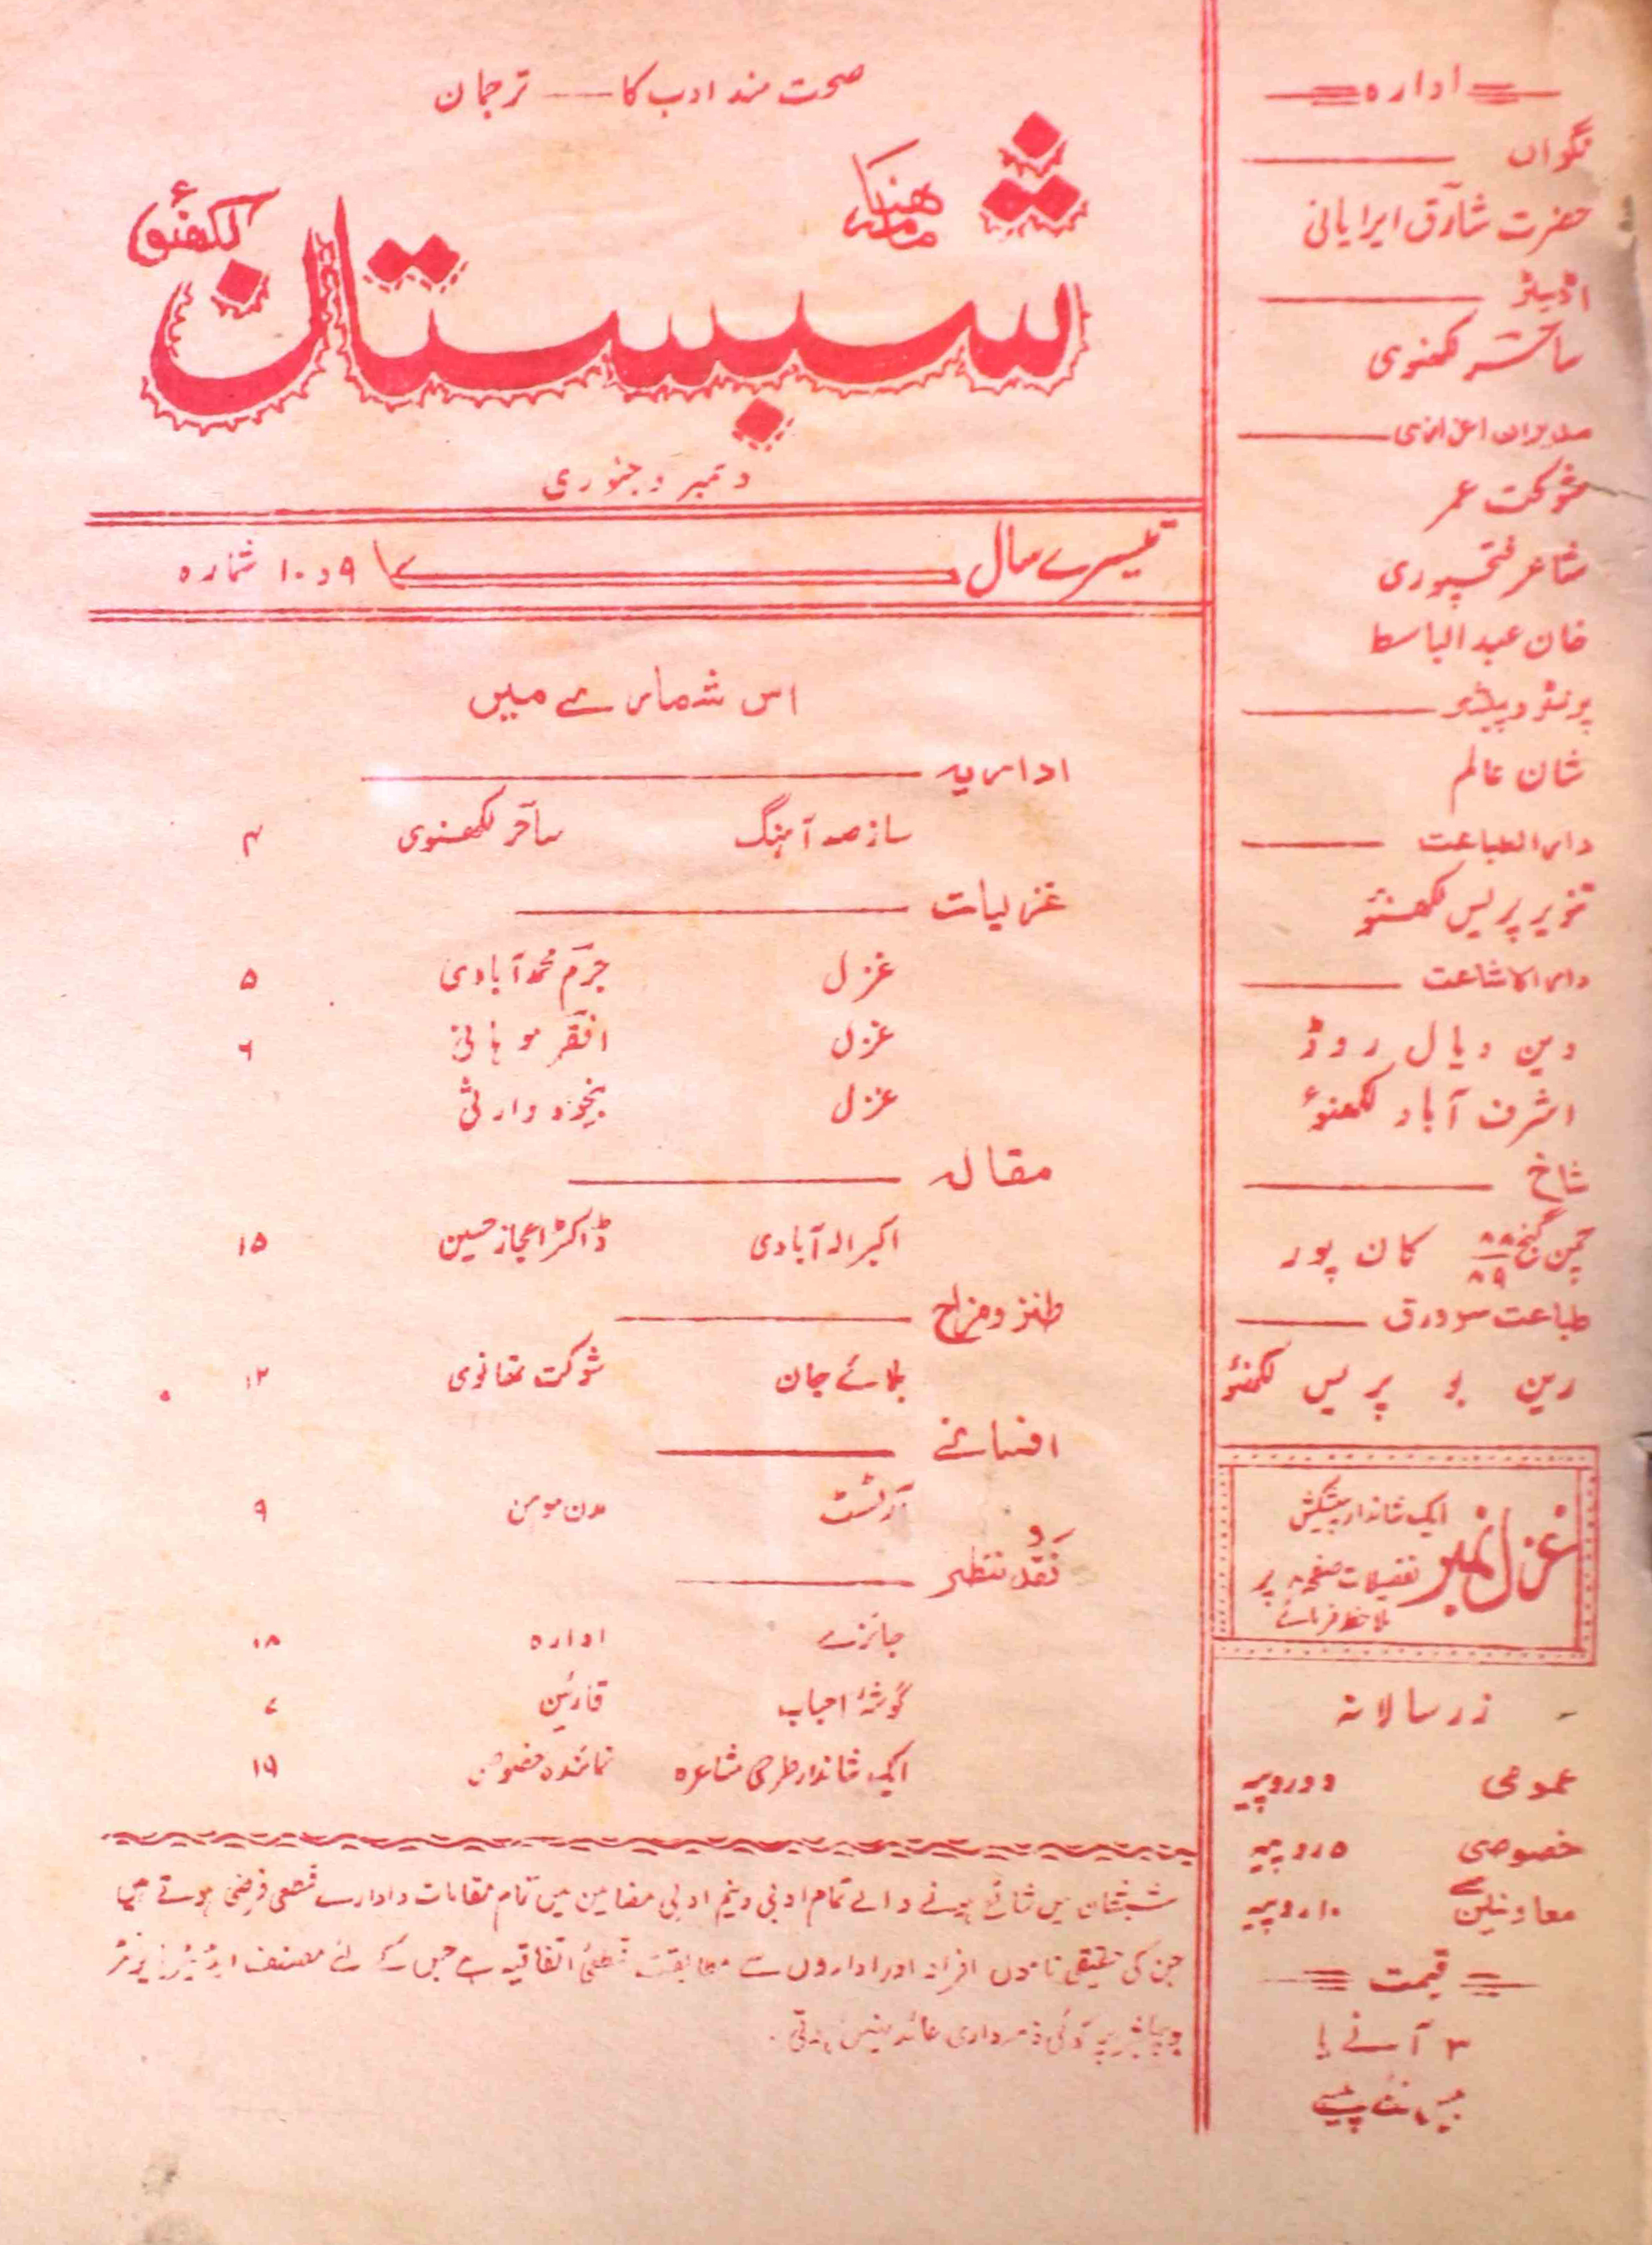 صحت مند ادب کا —— ترجمان
ماهنامه
شبستان
لکھنؤ
دسمبر و جنوری
تیسرے سال کا ۹ و ۱۰ شمارہ
اس شمارے میں
اداریہ
ساز صد آہنگ ساحر لکھنوی ۴
غزلیات
غزل جرم محمد آبادی ۵
غزل افقر موہانی ۶
غزل بیخود وارثی
مقالہ
اکبر الہ آبادی ڈاکٹر اعجاز حسین ۱۵
طنز و مزاح
بلائے جان شوکت تھانوی ۱۲
افسانے
آرٹسٹ مدن موہن ۹
نقد و نظر
جائزے ادارہ ۱۸
گوشۂ احباب قارئین ۷
ایک شاندار طرحی مشاعرہ نمائندہ خصوصی ۱۹
شبستان میں شائع ہونے والے تمام ادبی و نیم ادبی مضامین میں تمام مقامات و ادارے قطعی فرضی ہوتے ہیں
جن کی حقیقی ناموں افراد اور اداروں سے مطابقت قطعی اتفاقیہ ہے جس کے لئے مصنف ایڈیٹر پرنٹر
و پبلشر پر کوئی ذمہ داری عائد نہیں ہوتی۔
ادارہ
نگراں
حضرت شارق ایرایانی
اڈیٹر
ساحر لکھنوی
مدیران اعزازی
شوکت عمر
شاعر فتحپوری
خان عبد الباسط
پرنٹر و پبلشر
شان عالم
دار الطباعت
تنویر پریس لکھنؤ
دار الاشاعت
دین دیال روڈ
اشرف آباد لکھنؤ
شاخ
چمن گنج ۸۸/۸۹ کان پور
طباعت سرورق
رین بو پریس لکھنؤ
غزل نمبر
ایک شاندار پیشکش
تفصیلات صفحہ ۸ پر
ملاحظہ فرمائے
زر سالانہ
عمومی دو روپیہ
خصوصی ۵ روپیہ
معاونین ۱۰ روپیہ
قیمت
۳ آنے یا
بیس نئے پیسے